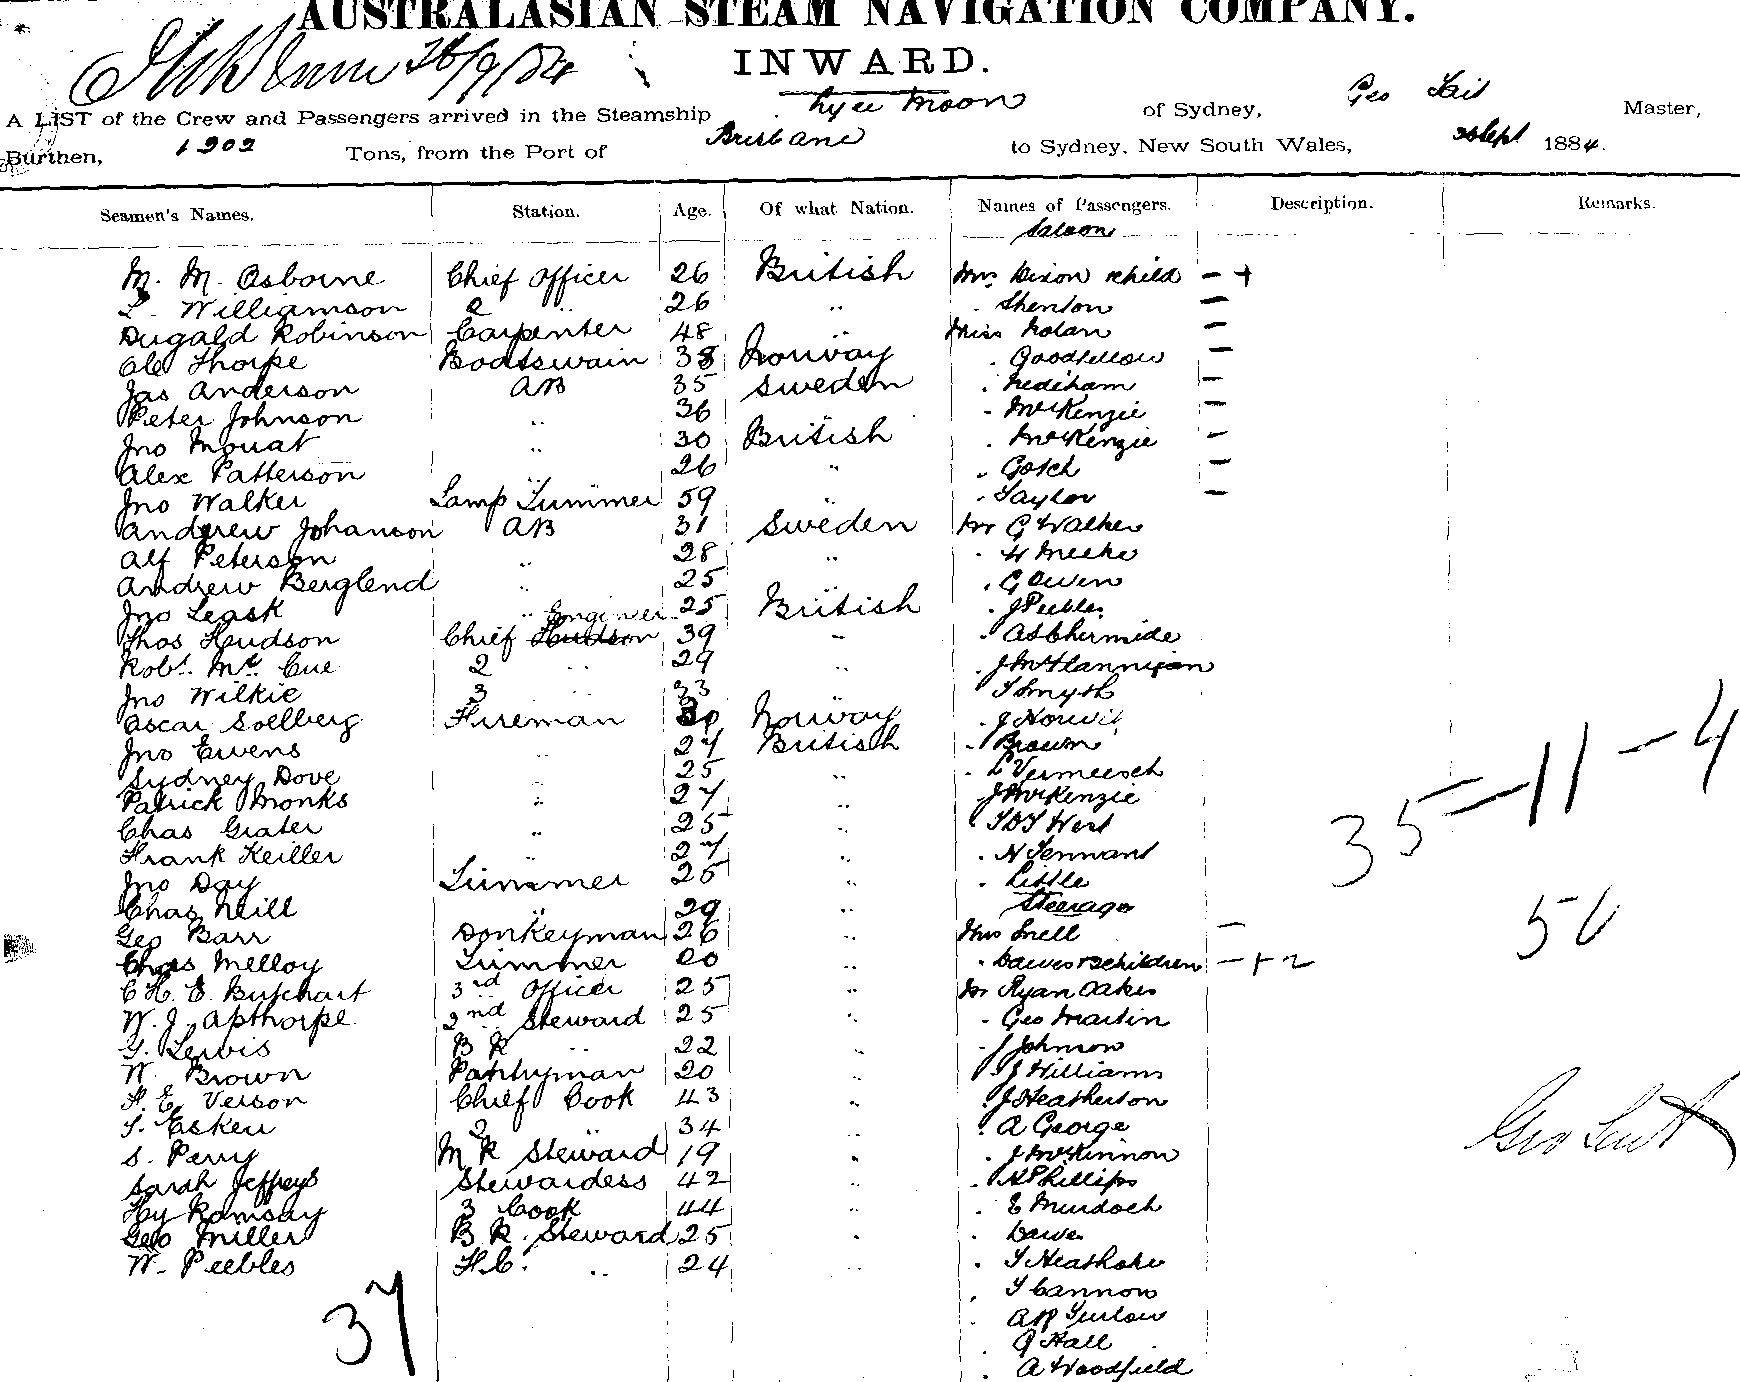 AUSTRALASIAN STEAM NAVIGATION COMPANY.
INWARD.
26/9/84
A LIST of the Crew and Passengers arrived in the Steamship Lyee Moon of Sydney, Geo Master,
Burthen, 1202 Tons, from the Port of Brisbane to Sydney, New South Wales, Sept 1884.
Seamen's Names. Station. Age. Of what Nation. Names of Passengers. Description. Remarks.
Saloon
M. M. Osborne Chief Officer 26 British Mrs Dixon & child - +
L. Williamson 2 " 26 " " Shenton -
Dugald Robinson Carpenter 48 " Miss Nolan -
Ole Thorpe Boatswain 38 Norway " Goodfellow -
Jas Anderson AB 35 Sweden " Nedham -
Peter Johnson " 36 " McKenzie -
Jno Mouat " 30 British " McKenzie -
Alex Patterson 26 " " Gotch -
Jno Walker Lamp Trimmer 59 " " Taylor -
Andrew Johanson AB 31 Sweden Mr G Walker
Alf Peterson " 28 " " H Meeke
Andrew Berglend " 25 " G Owen
Jno Leask " 25 British " J Peebles
Thos Hudson Chief Engineer 39 " " A S Chermide
Robt. Mc. Cue 2 " 29 " " J McFlannigan
Jno Wilkie 3 " 33 " T Smyth
Oscar Soellberg Fireman 30 Norway " J
Jno Ewens " 27 British " Brown
Sydney Dove " 25 " " L Vermeesch
Patrick Monks " 27 " J McKenzie
Chas Grater " 25 " " T D S West
Frank Keiller " 27 " " N Tennant
Jno Day Trimmer 25 " " Little
Steerage
Chas Neill " 29 "
Geo Barr Donkeyman 26 " Mrs Snell -
Chas Melloy Trimmer 20 " " Dawes & 2 children - + 2
C H. E. Butchart 3rd Officer 25 " Mr Ryan Oakes
W. J. Apthorpe 2nd Steward 25 " " Geo Martin
G. Lewis B R " 22 " " J Johnson
W. Brown Pantryman 20 " " J Williams
F. E. Verson Chief Cook 43 " " J Heatherton
S. Eskeu 2 " 34 " " A George
S. Perry M R Steward 19 " " J McKinnon
Sarah Jeffreys Stewardess 42 " " A Phillips
Hy Ramsay 3 Cook 44 " " E Murdoch
Geo Miller B R. Steward 25 " " Dawes
W. Peebles F.C. " 24 " " T Heathcote
" T Cannon
" A R Turlow
" G Hall
" A Woodfield
35 - 11 - 4
50
37